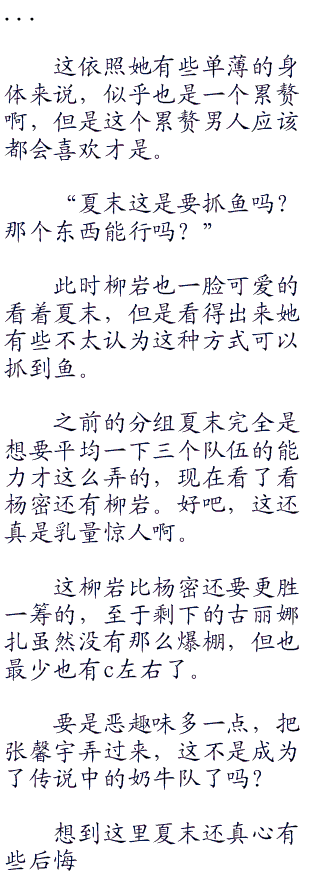 ...
这依照她有些单薄的身
体来说，似乎也是一个累赘
啊，但是这个累赘男人应该
都会喜欢才是。
“夏末这是要抓鱼吗？
那个东西能行吗？”
此时柳岩也一脸可爱的
看着夏末，但是看得出来她
有些不太认为这种方式可以
抓到鱼。
之前的分组夏末完全是
想要平均一下三个队伍的能
力才这么弄的，现在看了看
杨密还有柳岩。好吧，这还
真是乳量惊人啊。
这柳岩比杨密还要更胜
一筹的，至于剩下的古丽娜
扎虽然没有那么爆棚，但也
最少也有c左右了。
要是恶趣味多一点，把
张馨宇弄过来，这不是成为
了传说中的奶牛队了吗？
想到这里夏末还真心有
些后悔